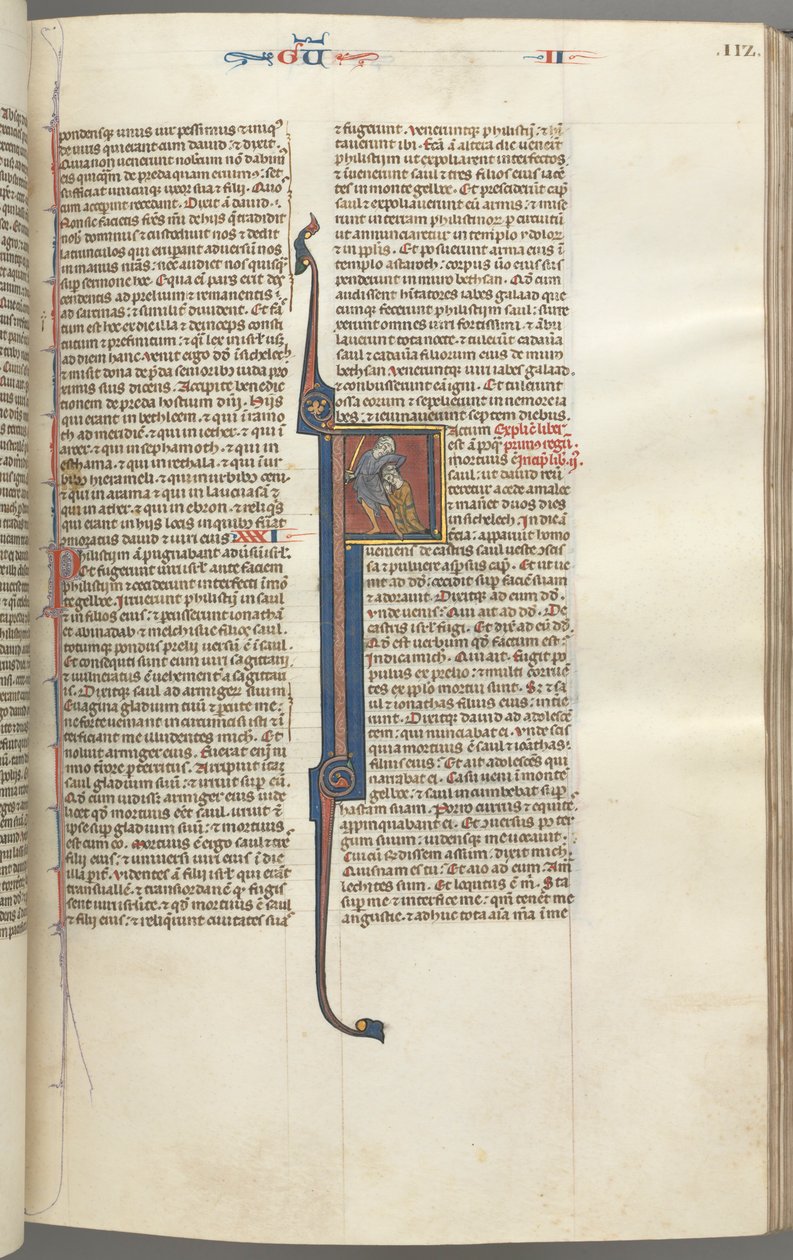 GUM
II
.112.
pondensq; unus uir pessimus & iniq9
de uiris qui ierant cum dauid: & dixit.
Quia non uenerunt nobcum nō dabim9
eis quicq̄m de preda quam eruim9: sed
sufficiat unicuiq; uxor sua & filii. Quos
cum acceperint recedant. Dixit ā dauid.
Non sic facietis fr̄es mi de hijs q̄ tradidit
nob dominus & custodiuit nos & dedit
latrunculos qui eruperant aduersum nos
in manus nr̄as: nec audiet nos quisq̄
sup sermone hoc. Equa eī pars erit des
cendentis ad prelium & remanentis
ad sarcinas: & similit diuident. Et fac
tum est hoc ex die illa & deinceps consti
tutum & prefinitum: & q̄i lex in isrl usq;
ad diem hanc. Venit ergo dd in sichelech
& misit dona de p̄da senioribus iuda pro
ximis suis dicens. Accipite benedic
tionem de preda hostium dn̄i. Hijs
qui erant in bethleem. & qui in ramo
th ad meridiē. & qui in iether. & qui i
aroer. & qui in sephamoth. & qui in
esthama. & qui in rethala. & qui i ur
bib9 hierameli. & qui in urbib9 ceni.
& qui in arama & qui in lacu asan &
qui in ather. & qui in ebron. & reliq̄s
qui erant in hijs locis in quib9 fuerat
omoratus dauid & uiri eius XXXI
Philistiim ā pugnabant aduersum isrl.
Et fugerunt uiri isrl ante faciem
philistiim & ceciderunt interfecti i mō
te gelboe. Irruerunt philistiim in saul
& in filios eius: & percusserunt ionathā
& abinadab & melchisue filios saul.
totumque pondus prelij uersū ē i saul
Et consecuti sunt eum uiri sagittarij
& uulneratus ē uehementer a sagittari
is. Dixitque saul ad armigerum suum
Euagina gladium tuū & percute me:
ne forte ueniant incircumcisi isti & i
terficiant me illudentes mich. Et
noluit armiger eius. Fuerat enī ni
mio timore perterritus. Arripuit itaq;
saul gladium suū: & irruit sup eū.
Qd cum uidisset armiger eius uide
licet qd mortuus esset saul. irruit &
ipse sup gladium suū: & mortuus
est cum eo. Mortuus ē ergo saul & tres
filij eius: & uniuersi uiri eius i die
illa pariter. Videntes ā filij isrl qui erāt
transuallē. & transiordanē q̄ fugis
sent uiri isrlite. & qd mortuus ē saul
& filij eius: & reliquerunt ciuitates suas
& fugerunt. Veneruntq; philistijm: & hi
tauerunt ibi. Fcā ā altera die uenerūt
philistiim ut expoliarent interfectos
& inuenerunt saul & tres filios eius iacē
tes in monte gelboe. Et presciderūt caput
saul & expoliauerunt eū armis: & mise
runt in terram philistinor p circuitū
ut annunciaretur in templo ydolor
& in pp̄lis. Et posuerunt arma eius i
templo astaroth: corpus uo eius sus
penderunt in muro bethsan. Qd cum
audissent hitatores iabes galaad que
cunque fecerunt philistiim saul: surre
xerunt omnes uiri fortissimi. & ābu
lauerunt tota nocte. & tulerūt cadauer
saul & cadauera filiorum eius de muro
bethsan. Veneruntque uiri iabes galaad.
& combusserunt ea igni. Et tulerunt
ossa eorum & sepelierunt in nemore ia
bes: & ieiunauerunt septem diebus.
Factum Explic̄ liber
est ā p̄q̄ primus regū.
mortuus ē Incip̄ lib. ij.
saul: ut dauid reu
teretur a cede amalec
& maneret duos dies
in sichelech. In die ā
tercia: apparuit homo
ueniens de castris saul ueste sciss
sa & puluere aspersus cap. Et ut ue
nit ad dd: cecidit sup faciē suam
& adorauit. Dixitque ad eum dd.
Vnde uenis: Qui ait ad dd. De
castris isrl fugi. Et dix ad eū dd.
Qd est uerbum qd factum est:
Indica mich. Qui ait. Fugit po
pulus ex prelio: & multi corrue
tes ex pplo mortui sunt. Sz & sa
ul & ionathas filius eius: intie
runt. Dixitque dauid ad adolescē
tem: qui nunciabat ei. Vnde scis
quia mortuus ē saul & ionathas:
filius eius: Et ait adolescēs qui
narrabat ei. Casu ueni i monte
gelboe: & saul incumbebat sup
hastam suam. Porro currus & equite
appinquabant ei. Et conuersus post ter
gum suum: uidensque me uocauit.
Cui cū rndissem assum: dixit mich.
Quisnam es tu: Et aio ad eum: Ama
lechites sum. Et locutus ē m. Sta
sup me & interfice me: qm̄ tenēt me
angustie. & adhuc tota aīa m̄a i me